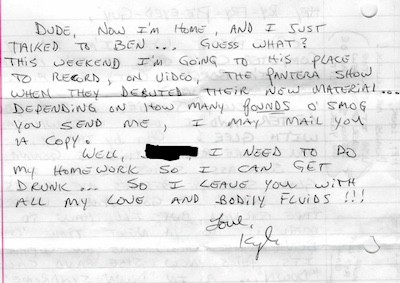 DUDE, NOW I'M HOME, AND I JUST
TALKED TO BEN... GUESS WHAT?
THIS WEEKEND I'M GOING TO HIS PLACE
TO RECORD, ON VIDEO, THE PANTERA SHOW
WHEN THEY DEBUTED THEIR NEW MATERIAL...
DEPENDING ON HOW MANY POUNDS O' SMOG
YOU SEND ME, I MAY MAIL YOU
A COPY.
WELL, I NEED TO DO
MY HOMEWORK SO I CAN GET
DRUNK... SO I LEAVE YOU WITH
ALL MY LOVE AND BODILY FLUIDS!!!
Love,
Kyle